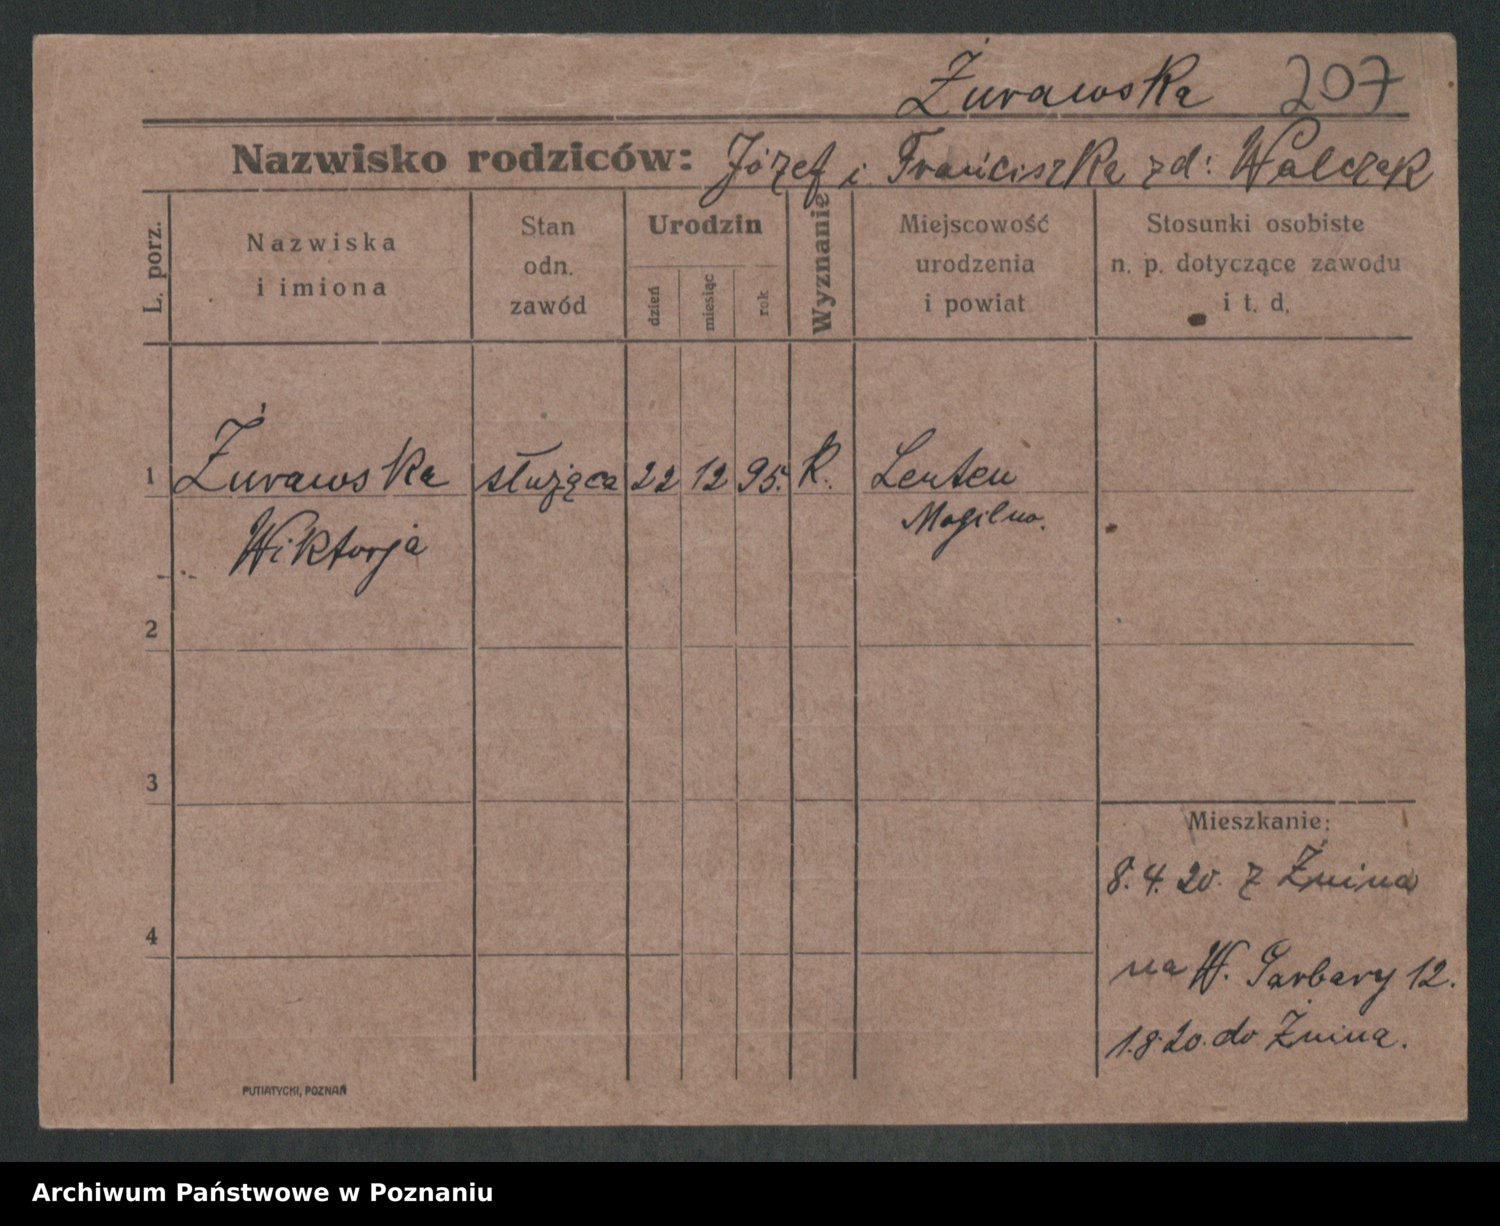 Żurawska 207
Nazwisko rodziców: Józef i Franciszka zd: Walczak
L. porz.
Nazwiska
i imiona
Stan
odn.
zawód
Urodzin
dzień
miesiąc
rok
Wyznanie
Miejscowość
urodzenia
i powiat
Stosunki osobiste
n. p. dotyczące zawodu
i t. d.
1 Żurawska służąca 22 12 95. k. Lenten
Wiktorja Mogilno.
2
3
Mieszkanie:
8.4.20. z Żnina
4
na W. Garbary 12.
1.8.20. do Żnina.
PUTIATYCKI, POZNAŃ
Archiwum Państwowe w Poznaniu